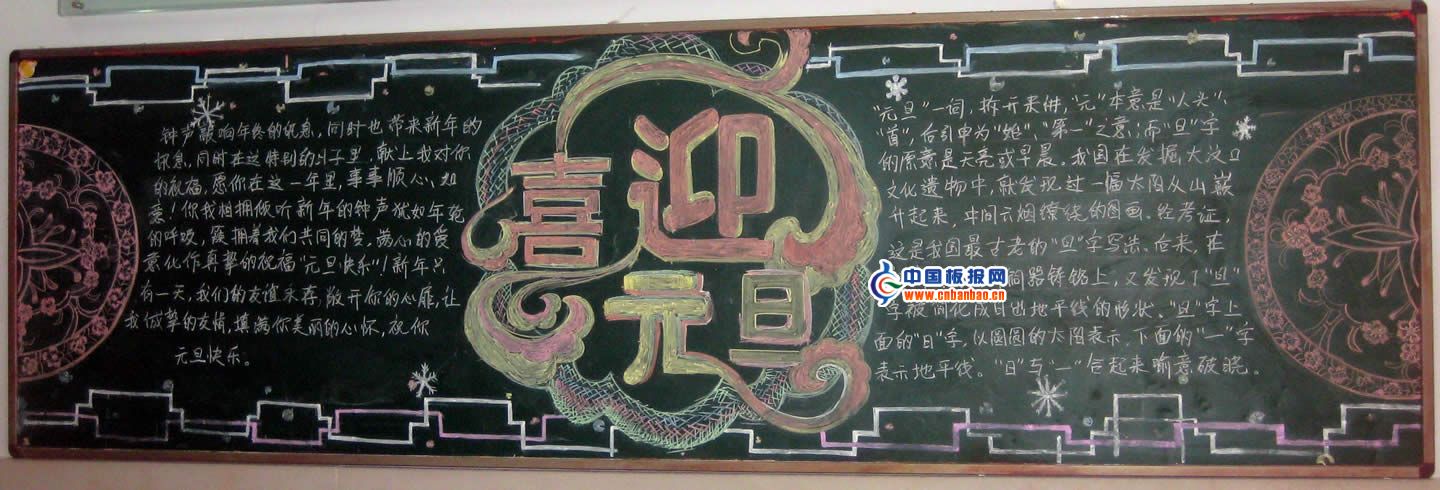 钟声敲响年终的讯息，同时也带来新年的
讯息，同时在这特别的日子里，献上我对你
的祝福，愿你在这一年里，事事顺心、如
意！你我相拥倾听新年的钟声犹如年轮
的呼吸，簇拥着我们共同的梦，满心的爱
意化作真挚的祝福"元旦快乐"！新年只
有一天，我们的友谊永存，敞开你的心扉，让
我诚挚的友情，填满你美丽的心怀，祝你
元旦快乐。
喜迎
元旦
"元旦"一词，拆开来讲，"元"本意是"人头"、
"首"，后引申为"始"、"第一"之意；而"旦"字
的原意是天亮或早晨。我国在发掘大汶口
文化遗物中，就发现过一幅太阳从山巅
升起来，中间云烟缭绕的图画。经考证，
这是我国最古老的"旦"字写法。后来，在
铜器铸铭上，又发现了"旦"
字被简化成日出地平线的形状。"旦"字上
面的"日"字，以圆圆的太阳表示，下面的"一"字
表示地平线。"日"与"一"合起来喻意破晓。
中国板报网
www.cnbanbao.cn